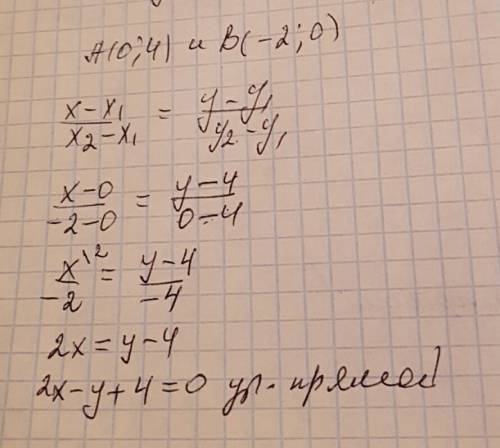 A(0;4) и B(-2;0)
(x-x₁)/(x₂-x₁) = (y-y₁)/(y₂-y₁)
(x-0)/(-2-0) = (y-4)/(0-4)
x\²/-2 = (y-4)/-4
2x=y-4
2x-y+4=0 ур. прямой